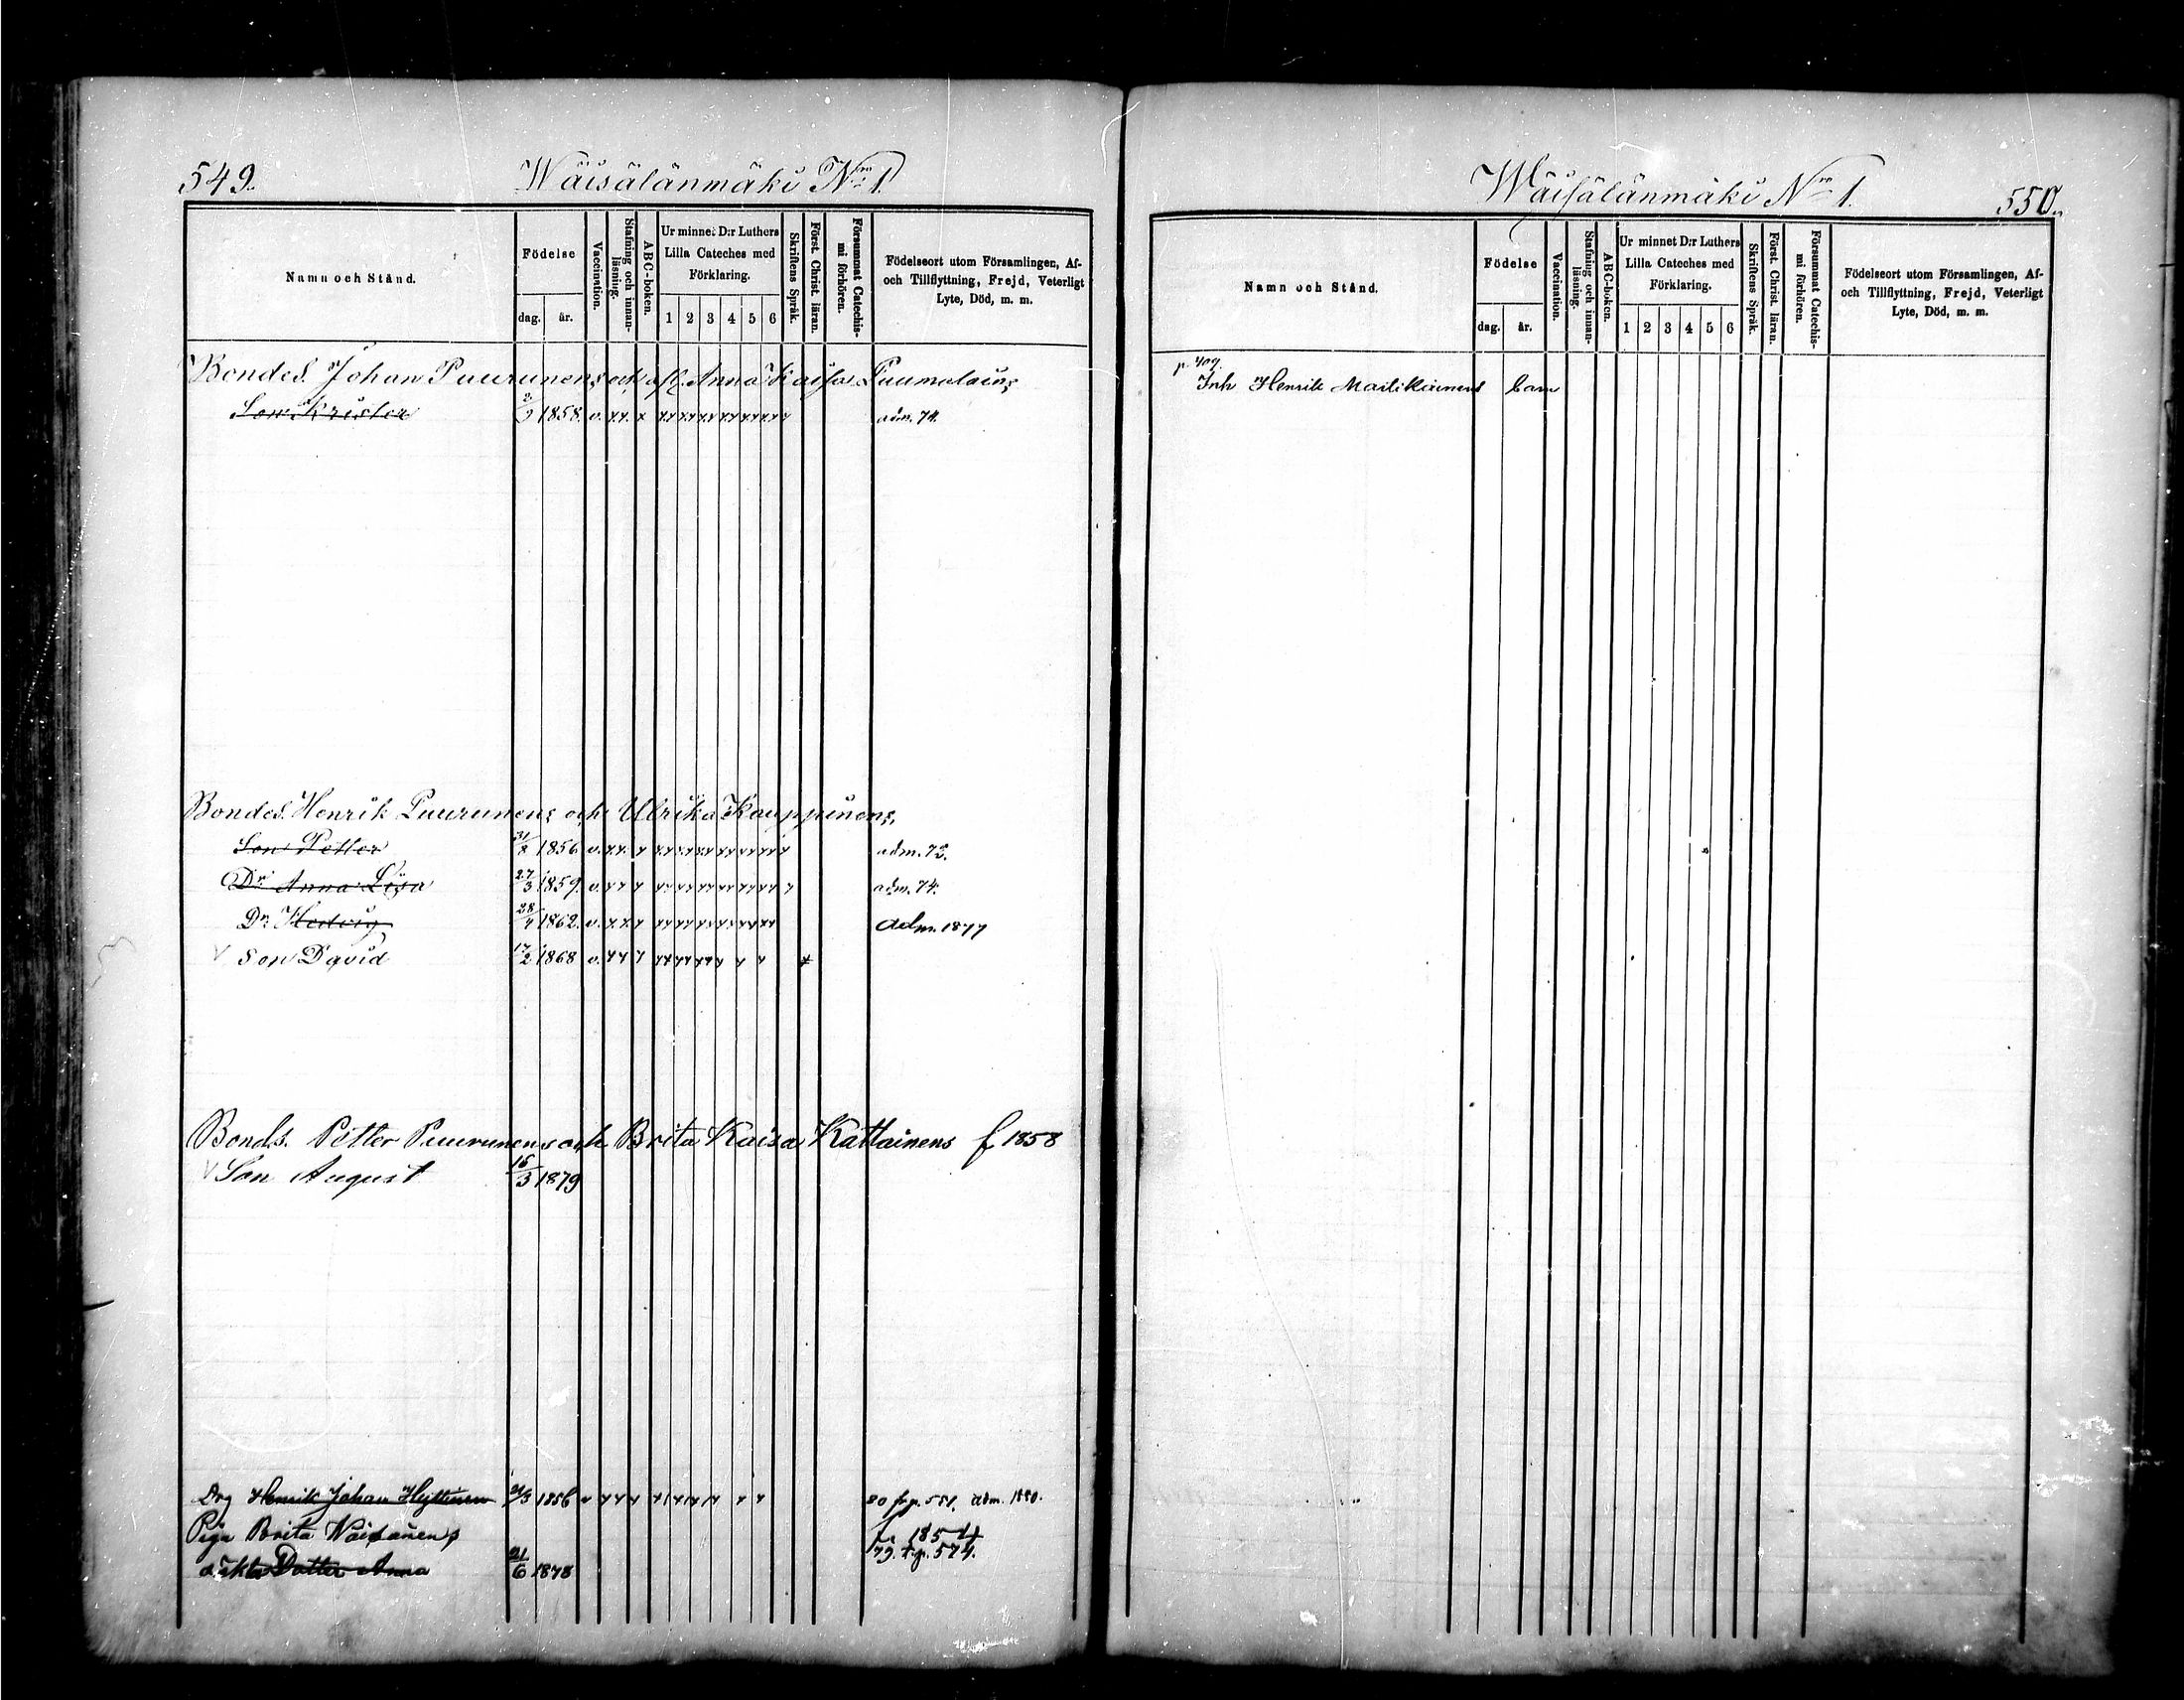 549. Wäisälänmäki No 1.
Namn och Stånd.
Födelse
dag. år.
Vaccination.
Stafning och innan-läsning.
ABC-boken.
Ur minnet D:r Luthers
Lilla Cateches med
Förklaring.
1 2 3 4 5 6
Skriftens Språk.
Först. Christ. läran.
Försummat Catechis-mi förhören.
Födelseort utom Församlingen, Af-
och Tillflyttning, Frejd, Veterligt
Lyte, Död, m. m.
Bondes. Johan Puurunens och afl. Anna Kaisa Puumalains
Son Krister 1858. v. adm. 74.
Bondes. Henrik Puurunens och Ulrika Kauppinens,
Son Petter 31/8 1856 v. adm. 73.
Dr Anna Lisa 27/3 1859. v. adm. 74.
Dr Hedvig 28/4 1862. v. adm. 1877
Son David 17/2 1868 v.
Bonds. Petter Puurunens och Brita Kaisa Kattainens f 1858
Son August 15/3 1879
Drg Henrik Johan Hyttinen 21/3 1856 80 fr p. 551. adm. 1880.
Piga Brita Wäisänens f. 1854
79. f.p. 574.
Dotter Anna 21/6 1878
Wäisälänmäki No 1. 550.
Namn och Stånd.
Födelse
dag. år.
Vaccination.
Stafning och innan-läsning.
ABC-boken.
Ur minnet D:r Luthers
Lilla Cateches med
Förklaring.
1 2 3 4 5 6
Skriftens Språk.
Först. Christ. läran.
Försummat Catechis-mi förhören.
Födelseort utom Församlingen, Af-
och Tillflyttning, Frejd, Veterligt
Lyte, Död, m. m.
p. 409.
Inh Henrik Matikainens barn